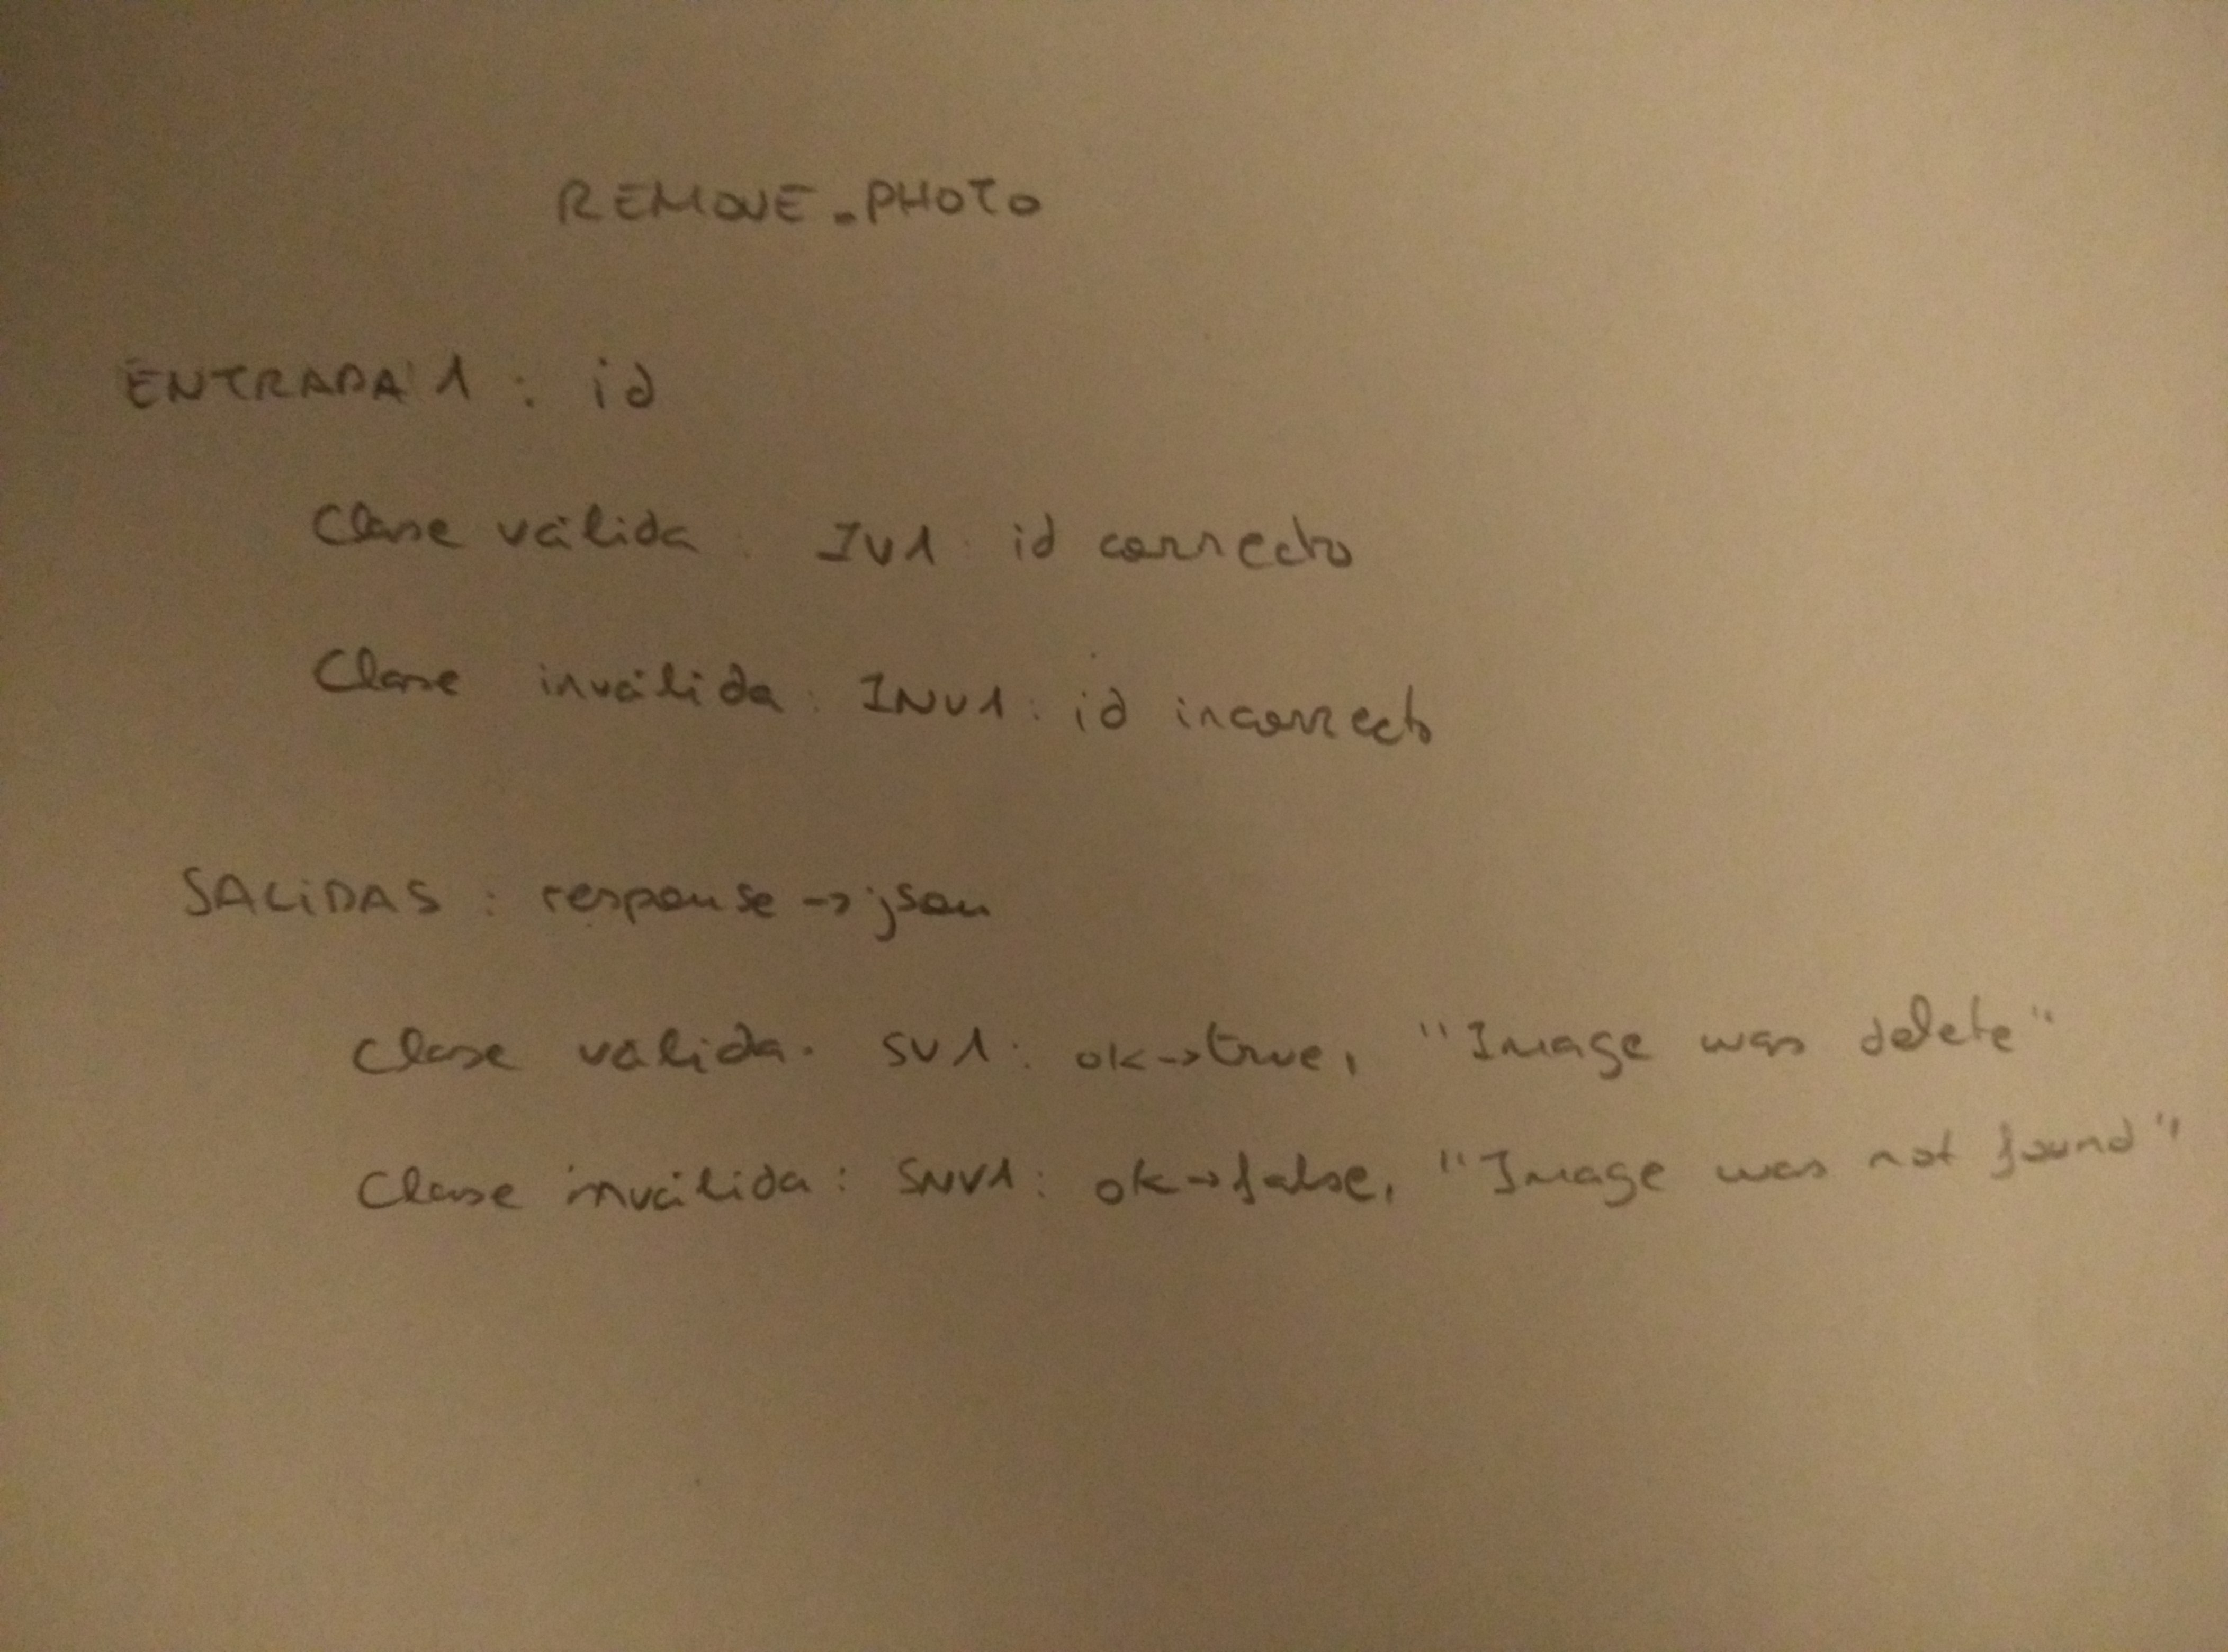 REMOVE_PHOTO
ENTRADA 1 : id
Clase válida : IV1 : id correcto
Clase inválida : INV1 : id incorrecto
SALiDAS : response -> json
Clase valida. SV1 : ok->true, "Image was delete"
Clase inválida : SNV1 : ok->false, "Image was not found"